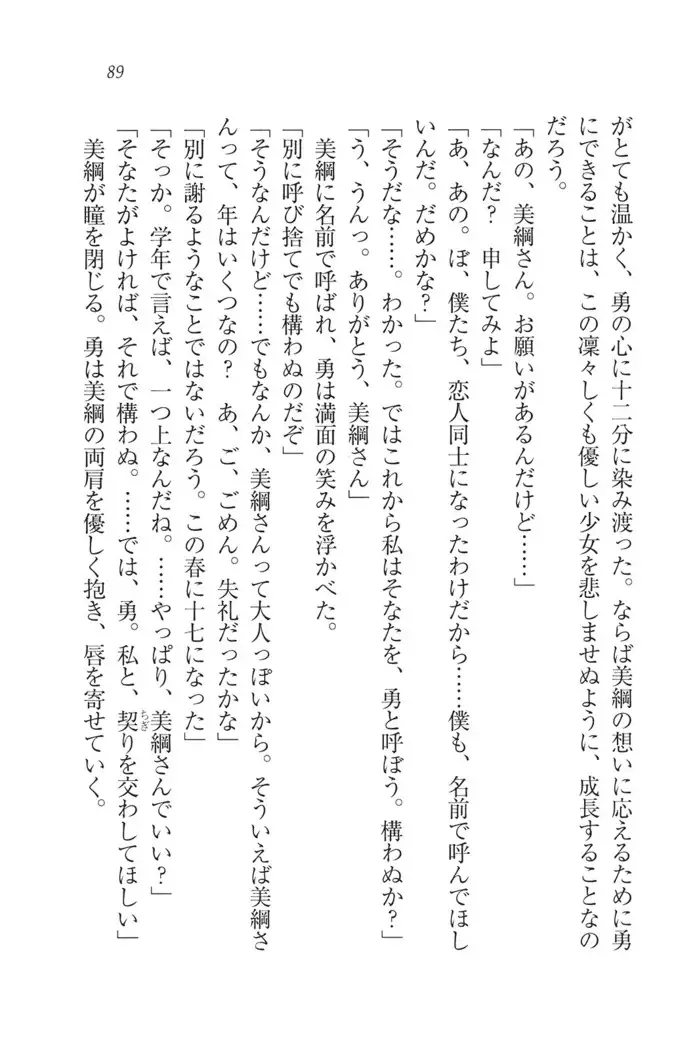 89
がとても温かく、勇の心に十二分に染み渡った。ならば美綱の想いに応えるために勇
にできることは、この凛々しくも優しい少女を悲しませぬように、成長することなの
だろう。
「あの、美綱さん。お願いがあるんだけど……」
「なんだ？　申してみよ」
「あ、あの。ぼ、僕たち、恋人同士になったわけだから……僕も、名前で呼んでほし
いんだ。だめかな？」
「そうだな……。わかった。ではこれから私はそなたを、勇と呼ぼう。構わぬか？」
「う、うんっ。ありがとう、美綱さん」
美綱に名前で呼ばれ、勇は満面の笑みを浮かべた。
「別に呼び捨てでも構わぬのだぞ」
「そうなんだけど……でもなんか、美綱さんって大人っぽいから。そういえば美綱さ
んって、年はいくつなの？　あ、ご、ごめん。失礼だったかな」
「別に謝るようなことではないだろう。この春に十七になった」
「そっか。学年で言えば、一つ上なんだね。……やっぱり、美綱さんでいい？」
「そなたがよければ、それで構わぬ。……では、勇。私と、契りを交わしてほしい」
ちぎ
美綱が瞳を閉じる。勇は美綱の両肩を優しく抱き、唇を寄せていく。